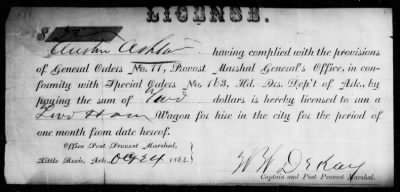 LICENSE.
$ 2
Austin Ashton having complied with the provisions
of General Orders No. 11, Provost Marshal General's Office, in con-
formity with Special Orders No. 163, Hd. Qrs. Dep't of Ark., by
paying the sum of Two dollars is hereby licensed to run a
Two Horse Wagon for hire in the city for the period of
one month from date hereof.
Office Post Provost Marshal,
Little Rock, Ark. Oct 24 186
Captain and Post Provost Marshal.